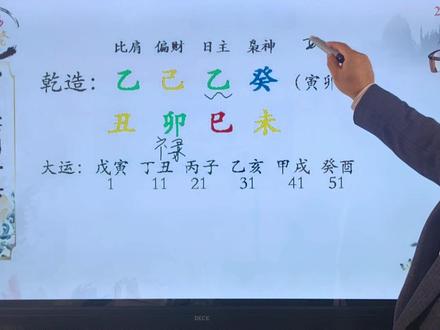 比肩 偏财 日主 枭神
乾造： 乙 己 乙 癸 （寅卯
丑 卯 巳 未
禄
大运： 戊寅 丁丑 丙子 乙亥 甲戌 癸酉
1 11 21 31 41 51